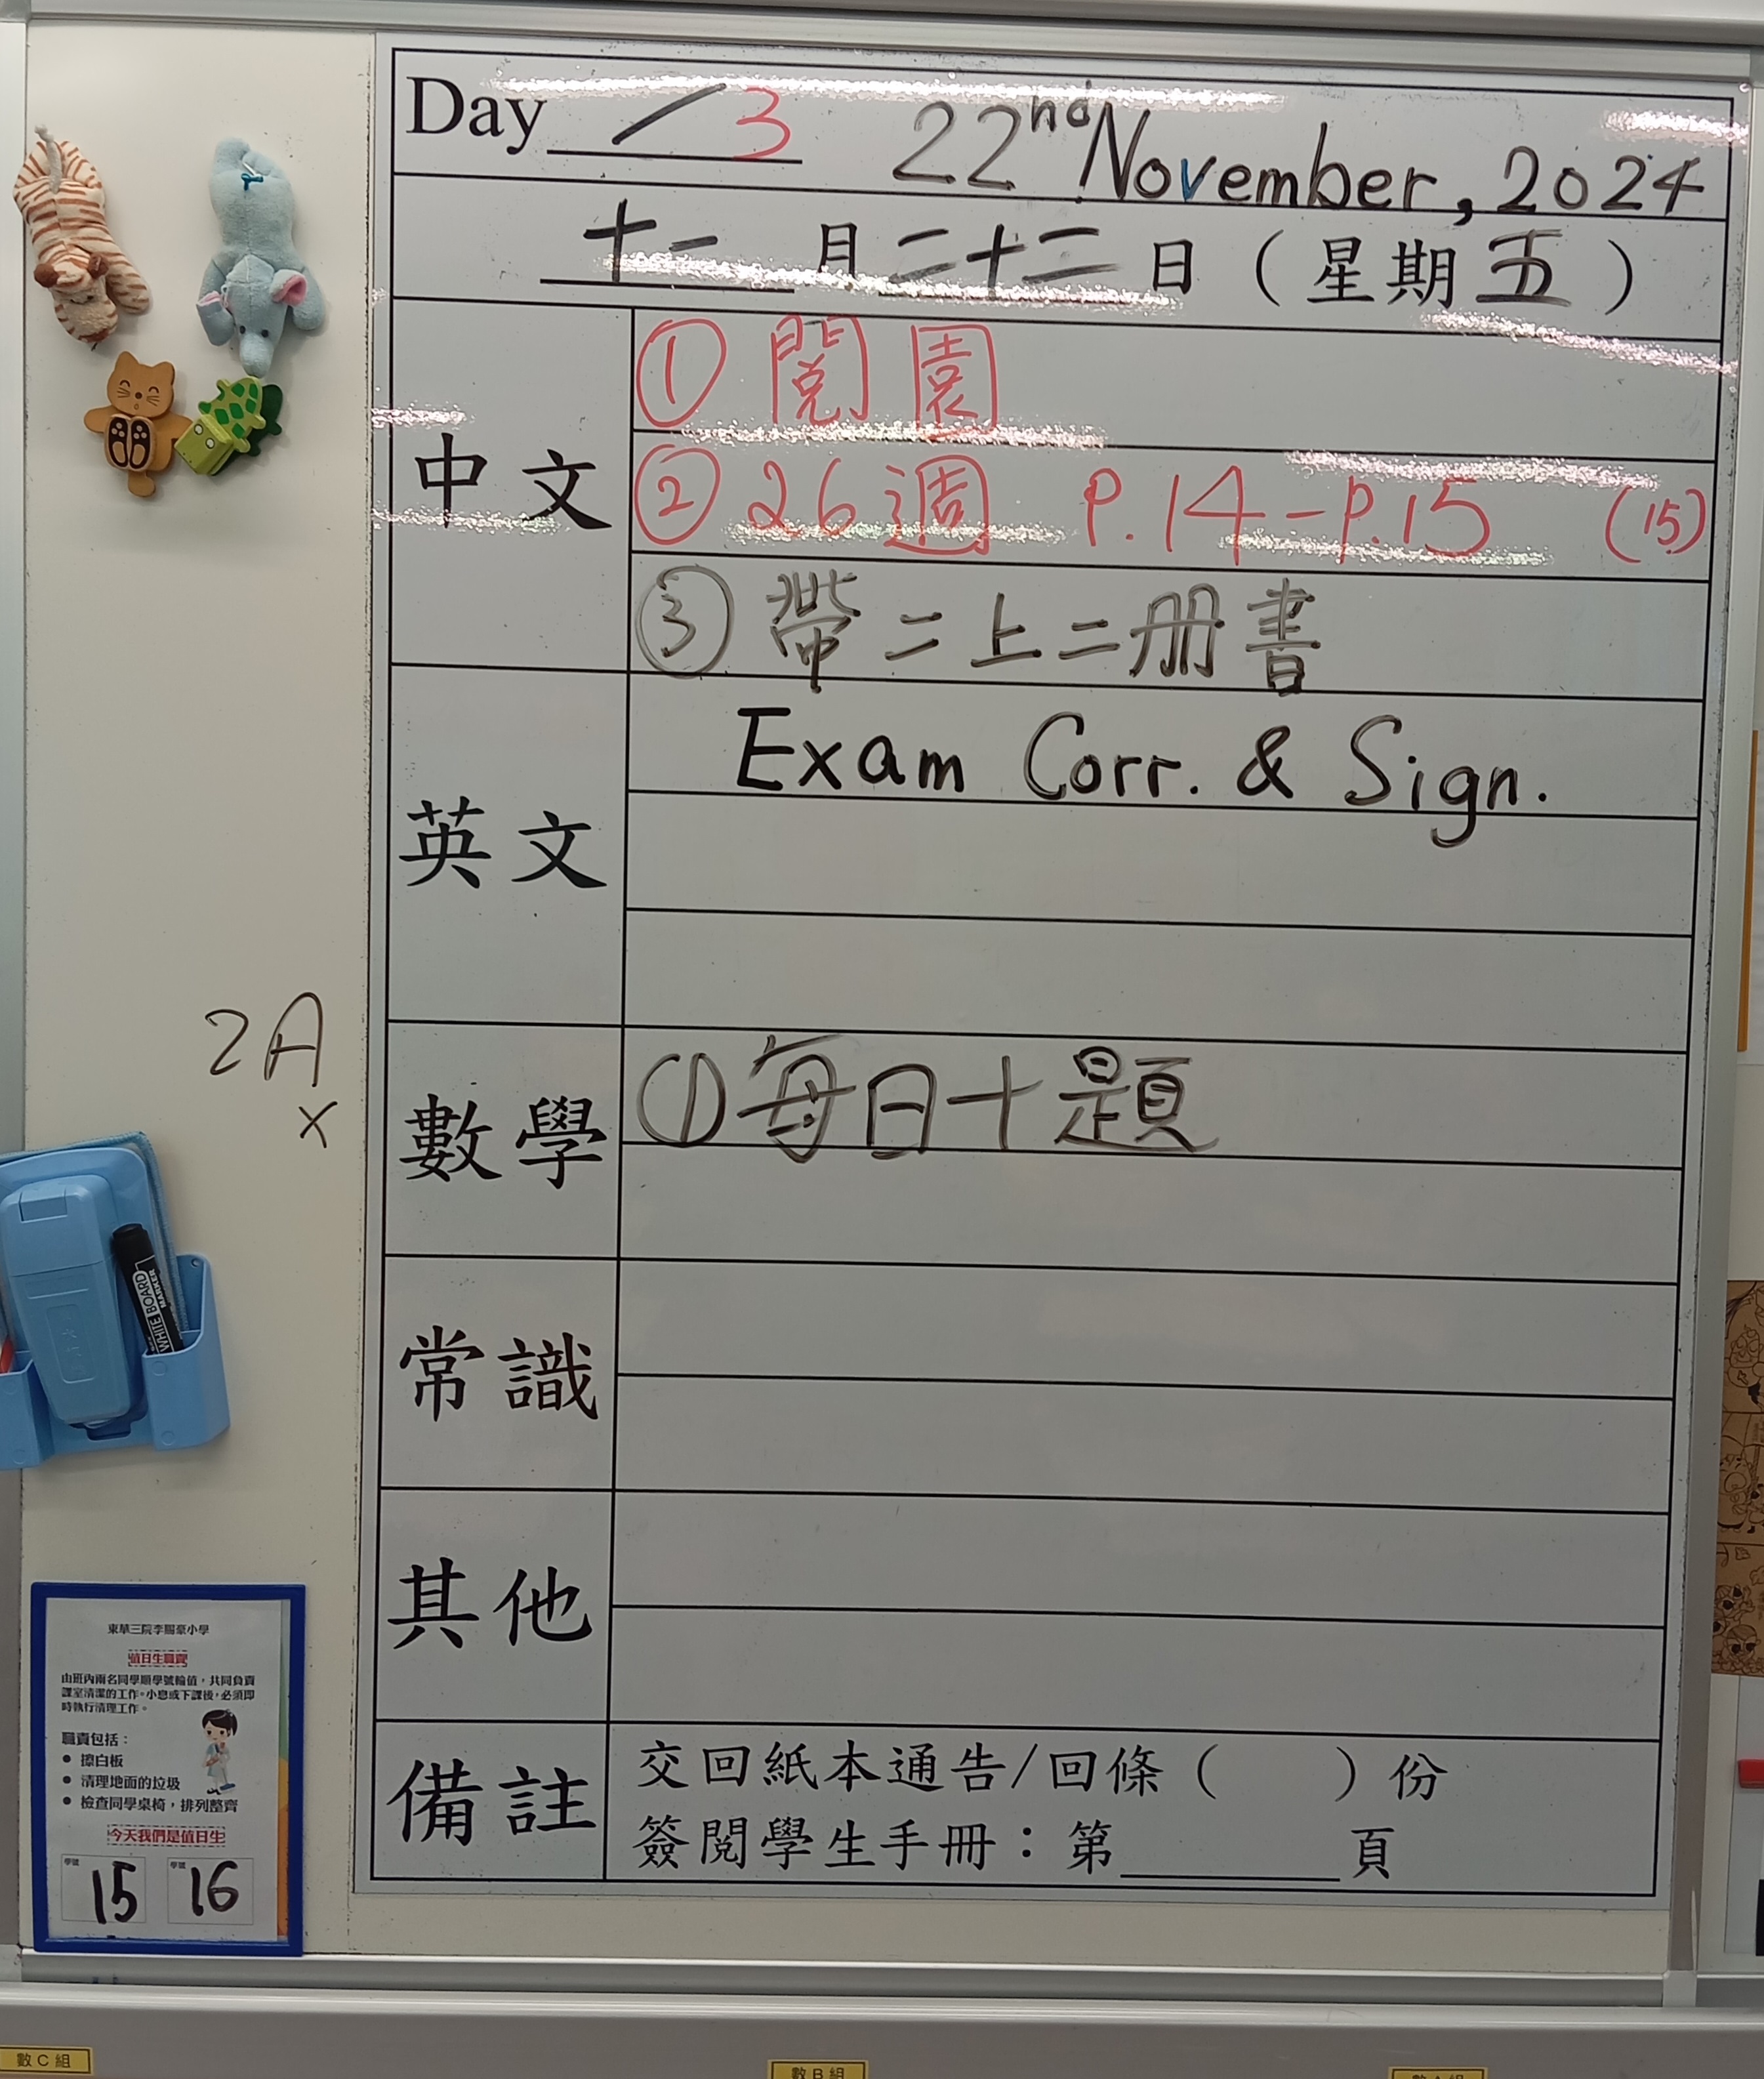 Day / 3 22nd November, 2024
十一 月 二十二 日 ( 星期 五 )
中文
① 閱園
② 26週 P.14-P.15 (15)
③ 帶二上二册書
英文
Exam Corr. & Sign.
2A
x
數學
① 每日十題
常識
其他
備註
交回紙本通告/回條 ( ) 份
簽閱學生手冊：第 頁
WHITE BOARD
MARKER
東華三院李賜豪小學
值日生職責
由班內兩名同學順學號輪值，共同負責
課室清潔的工作。小息或下課後，必須即
時執行清理工作。
職責包括：
● 擦白板
● 清理地面的垃圾
● 檢查同學桌椅，排列整齊
今天我們是值日生
學號 15
學號 16
數C組
數B組